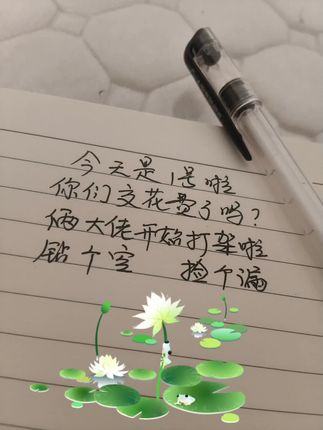 今天是1号啦
你们交花费了吗？
俩大佬开始打架啦
钻个空 捡个漏